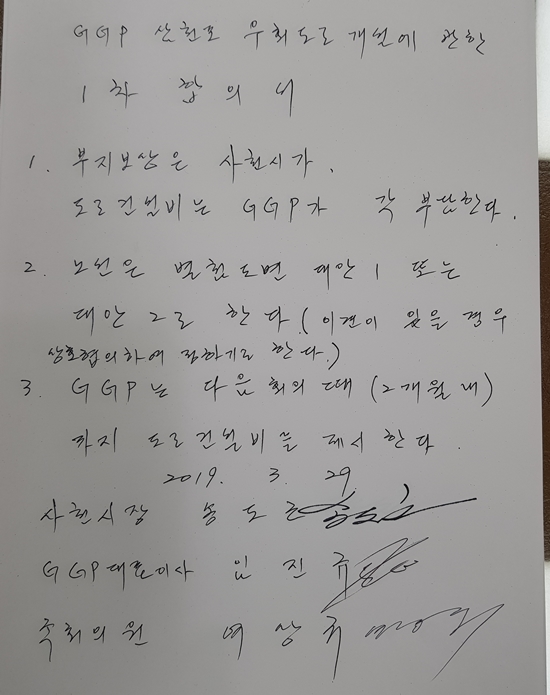 GGP 삼천포 우회도로 개설에 관한
1차 합의서
1. 부지보상은 사천시가,
도로건설비는 GGP가 각 부담한다.
2. 노선은 별첨도면 대안1 또는
대안2로 한다.(이견이 있을 경우
상호협의하여 정하기로 한다.)
3. GGP는 다음 회의 때 (2개월 내)
까지 도로건설비를 제시한다.
2019. 3. 29
사천시장 송도근
GGP대표이사 임진규
국회의원 여상규